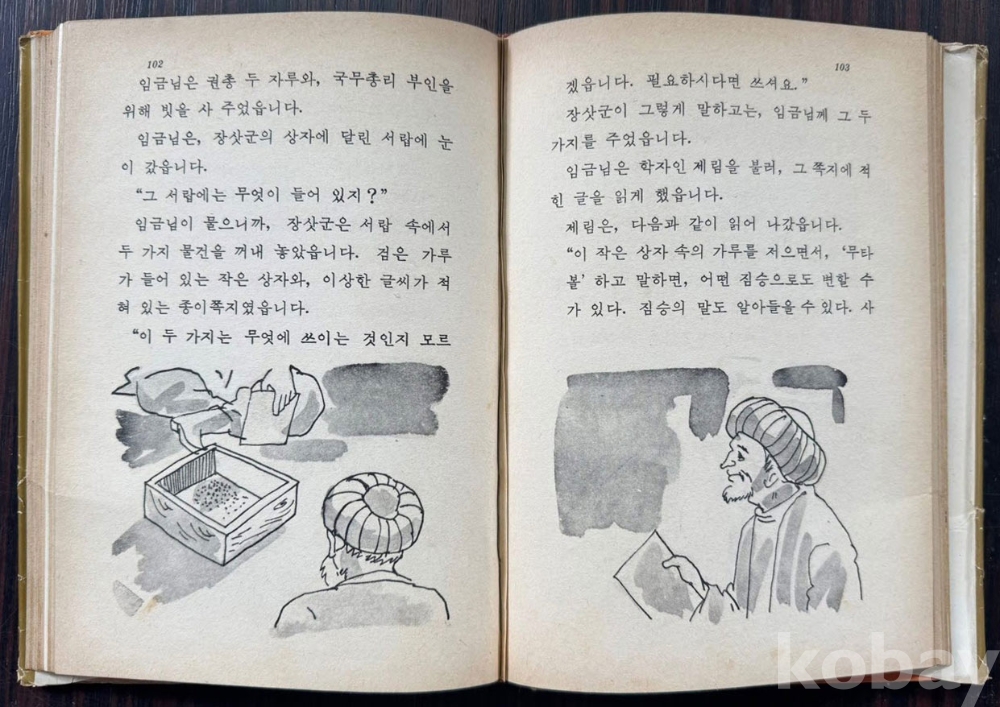 102
임금님은 권총 두 자루와, 국무총리 부인을
위해 빗을 사 주었읍니다.
임금님은, 장삿군의 상자에 달린 서랍에 눈
이 갔읍니다.
"그 서랍에는 무엇이 들어 있지?"
임금님이 물으니까, 장삿군은 서랍 속에서
두 가지 물건을 꺼내 놓았읍니다. 검은 가루
가 들어 있는 작은 상자와, 이상한 글씨가 적
혀 있는 종이쪽지였읍니다.
"이 두 가지는 무엇에 쓰이는 것인지 모르
103
겠읍니다. 필요하시다면 쓰셔요."
장삿군이 그렇게 말하고는, 임금님께 그 두
가지를 주었읍니다.
임금님은 학자인 제림을 불러, 그 쪽지에 적
힌 글을 읽게 했읍니다.
제림은, 다음과 같이 읽어 나갔읍니다.
"이 작은 상자 속의 가루를 저으면서, '무타
볼' 하고 말하면, 어떤 짐승으로도 변할 수
가 있다. 짐승의 말도 알아들을 수 있다. 사
kobay